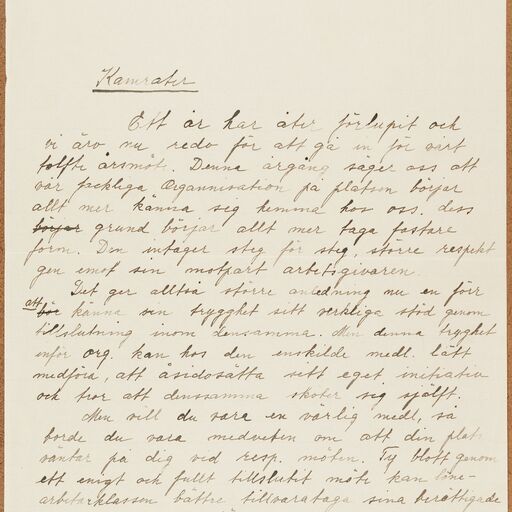 Kamrater
Ett år har åter förlupit och
vi äro nu redo för att gå in för vårt
tolfte årsmöte. Denna årgång säger oss att
vår fackliga Organnisation på platsen börjar
allt mer känna sig hemma hos oss. dess
börjar grund börjar allt mer taga fastare
form. Den intager steg för steg, större respekt
gen emot sin motpart arbetsgivaren.
Det ger alltså större anledning nu en förr
att känna sin trygghet sitt verkliga stöd genom
tillslutning inom densamma. Men denna trygghet
inför org. kan hos den enskilde medl. lätt
medföra, att åsidosätta sitt eget initiativ
och tror att densamma sköter sig självt.
Men vill du vara en värlig medl, så
borde du vara medveten om att din plats
väntar på dig vid resp. möten. Ty blott genom
ett enigt och fullt tillslutit möte kan löne-
arbetarklassen bättre tillvarataga sina berättigade